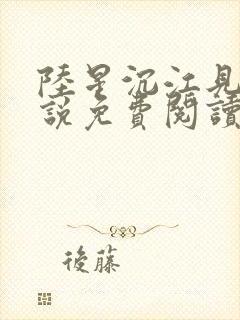 陸星沉江見
說免費閱讀
後藤